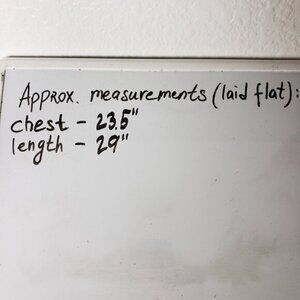 Approx. measurements (laid flat):
chest - 23.5"
length - 29"